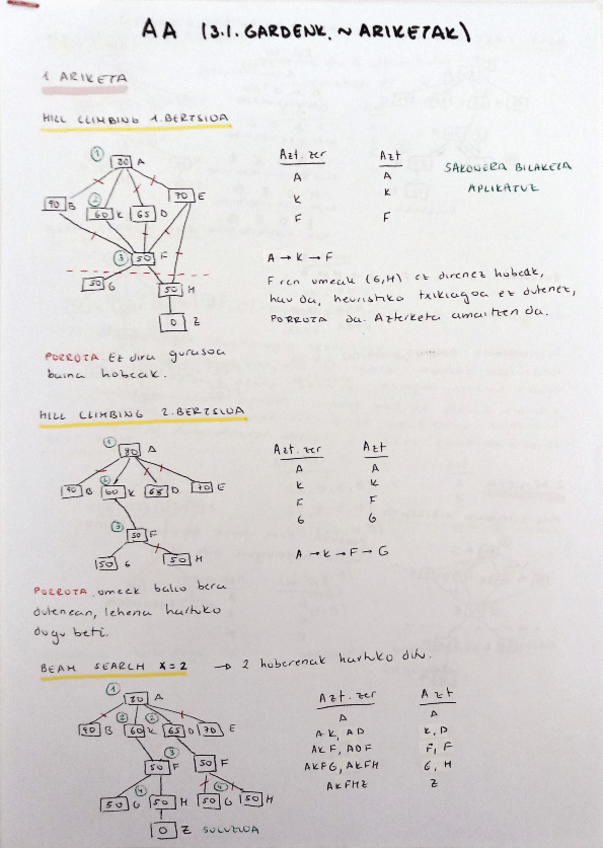 AA (3.1. GARDENK. ~ ARIKETAK)
1. ARIKETA
HILL CLIMBING 1. BERTSIOA
1 80 A
90 B 2 60 K 65 D 70 E
3 50 F
50 G 50 H
0 Z
Azt. zer Azt
A A
K K
F F
SAKONERA BILAKETA
APLIKATUZ
A → K → F
F ren umeak (G,H) ez direnez hobeak,
hau da, heuristiko txikiagoa ez dutenez,
PORROTA da. Azterketa amaitzen da.
PORROTA. Ez dira gurasoa
baino hobeak.
HILL CLIMBING 2. BERTSIOA
1 80 A
90 B 2 60 K 65 D 70 E
3 50 F
50 G 50 H
Azt. zer Azt
A A
K K
F F
G G
A → K → F → G
PORROTA. umeek balio bera
dutenean, lehena hartuko
dugu beti.
BEAM SEARCH K=2 → 2 hoberenak hartuko ditu.
1 80 A
90 B 2 60 K 2 65 D 70 E
3 50 F 50 F
50 G 4 50 H 50 G 4 50 H
0 Z SOLUZIOA
Azt. zer Azt
A A
AK, AD K, D
AKF, ADF F, F
AKFG, AKFH G, H
AKFHZ Z